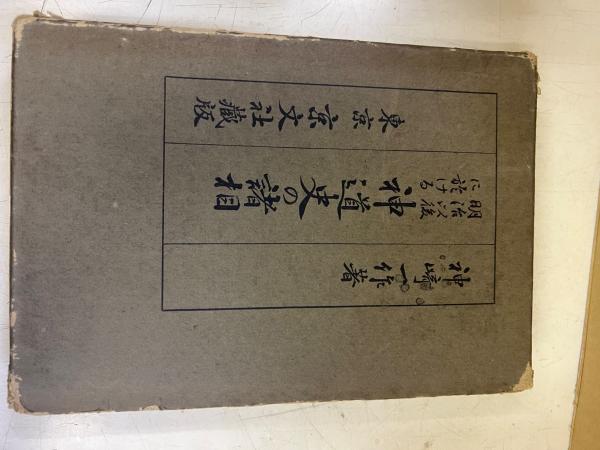 神崎一作著
明治以後
に於ける
神道史の諸相
東京 京文社藏版